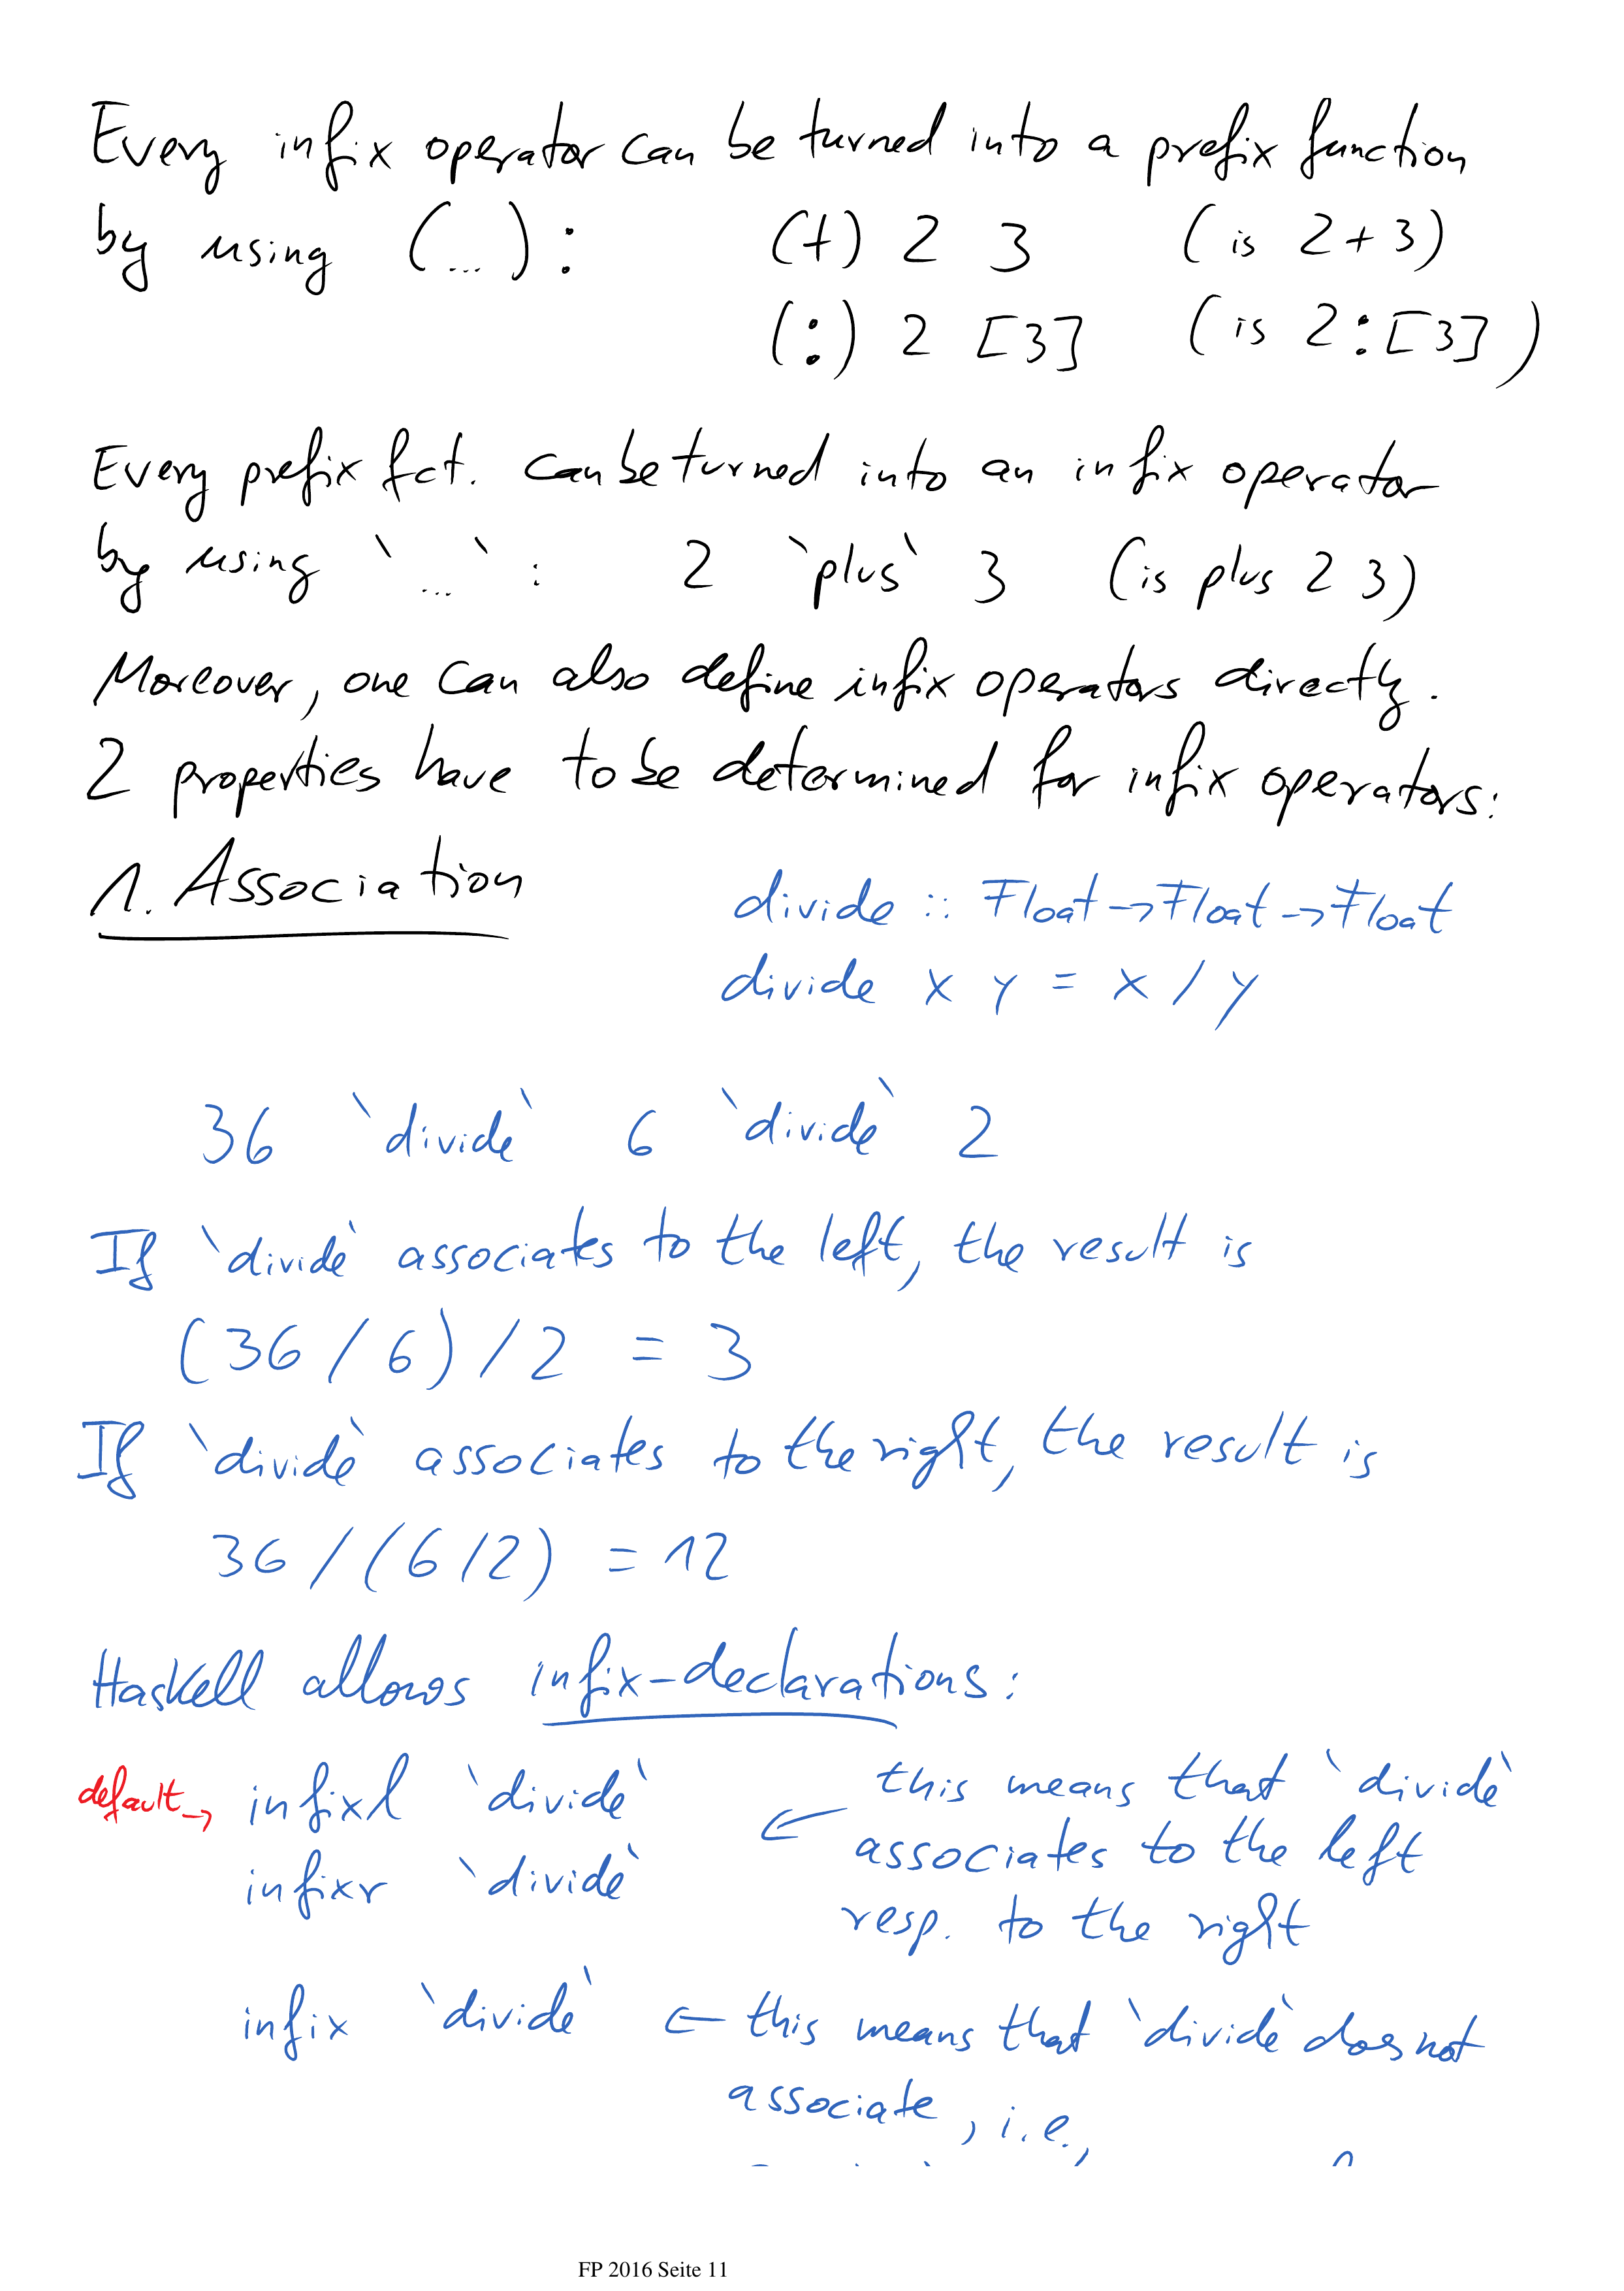 Every infix operator can be turned into a prefix function
by using (...): (+) 2 3 (is 2+3)
(:) 2 [3] (is 2:[3])
Every prefix fct. can be turned into an infix operator
by using `...` : 2 `plus` 3 (is plus 2 3)
Moreover, one can also define infix operators directly.
2 properties have to be determined for infix operators:
1. Association
divide :: Float -> Float -> Float
divide x y = x / y
36 `divide` 6 `divide` 2
If `divide` associates to the left, the result is
(36 / 6) / 2 = 3
If `divide` associates to the right, the result is
36 / (6 / 2) = 12
Haskell allows infix-declarations:
default → infixl `divide` ← this means that `divide`
associates to the left
infixr `divide`
resp. to the right
infix `divide` ← this means that `divide` does not
associate, i.e.,
FP 2016 Seite 11